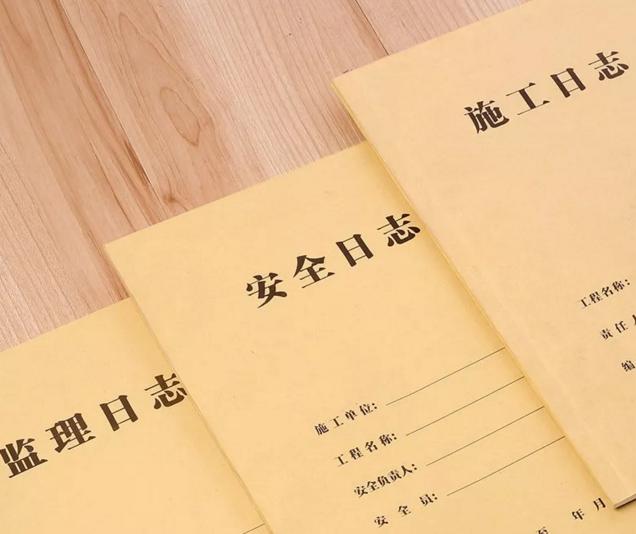 施工日志
工程名称:
责任
编
安全日志
施工单位:
工程名称:
安全负责人:
安全员:
至 年 月
监理日志